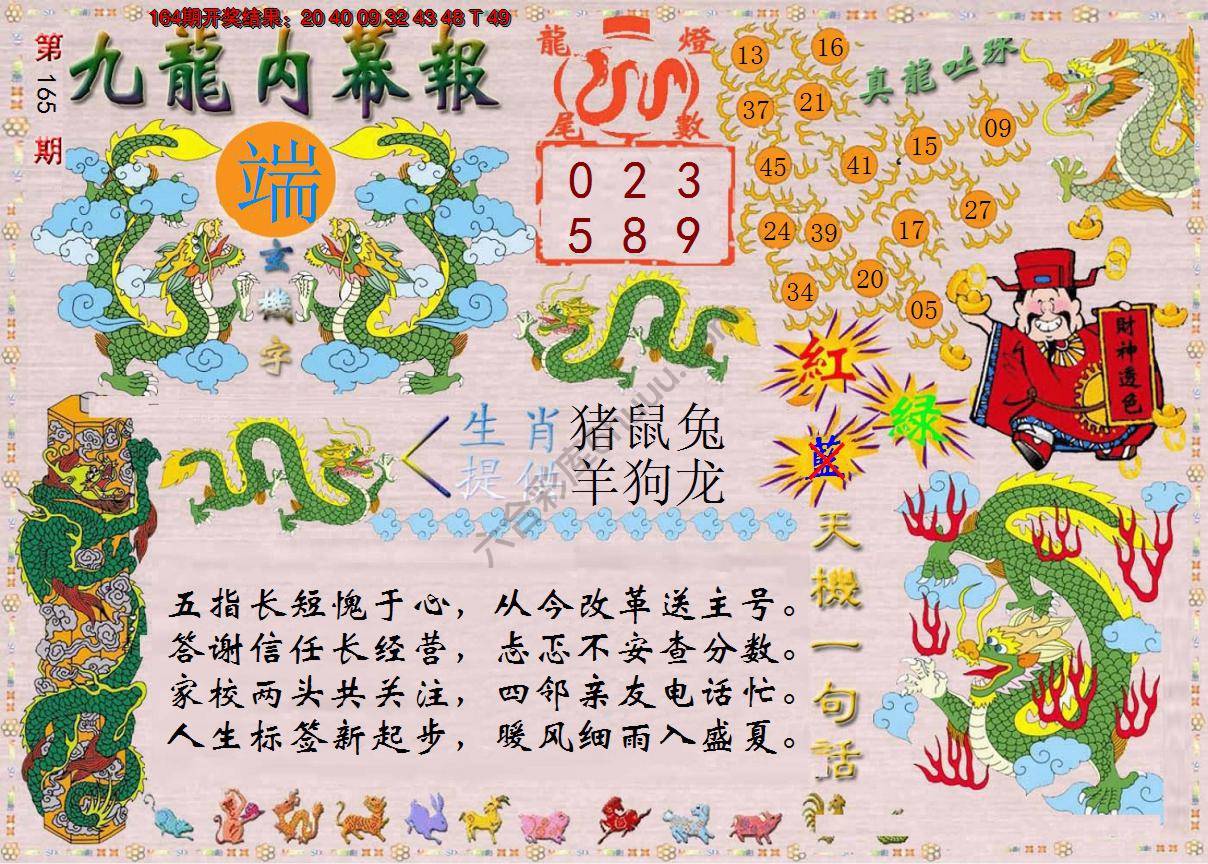 164期开奖结果：20 40 09 32 43 48 T 49
第165期
九龍内幕報
端
玄機字
龍燈
尾數
0 2 3
5 8 9
真龍吐珠
13 16
37 21
45 41 15 09
24 39 17 27
34 20 05
財神透色
紅
綠
藍
生肖 猪鼠兔
提供 羊狗龙
天機一句話
五指长短愧于心，从今改革送主号。
答谢信任长经营，忐忑不安查分数。
家校两头共关注，四邻亲友电话忙。
人生标签新起步，暖风细雨入盛夏。